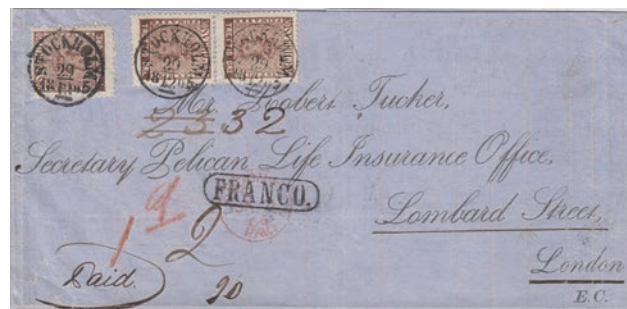 STOCKHOLM
29
STOCKHOLM
29
STOCKHOLM
29
Mr. Robert Tucker,
23 32
Secretary Pelican Life Insurance Office,
FRANCO.
Lombard Street,
London
E.C.
1d
2
Paid.
20